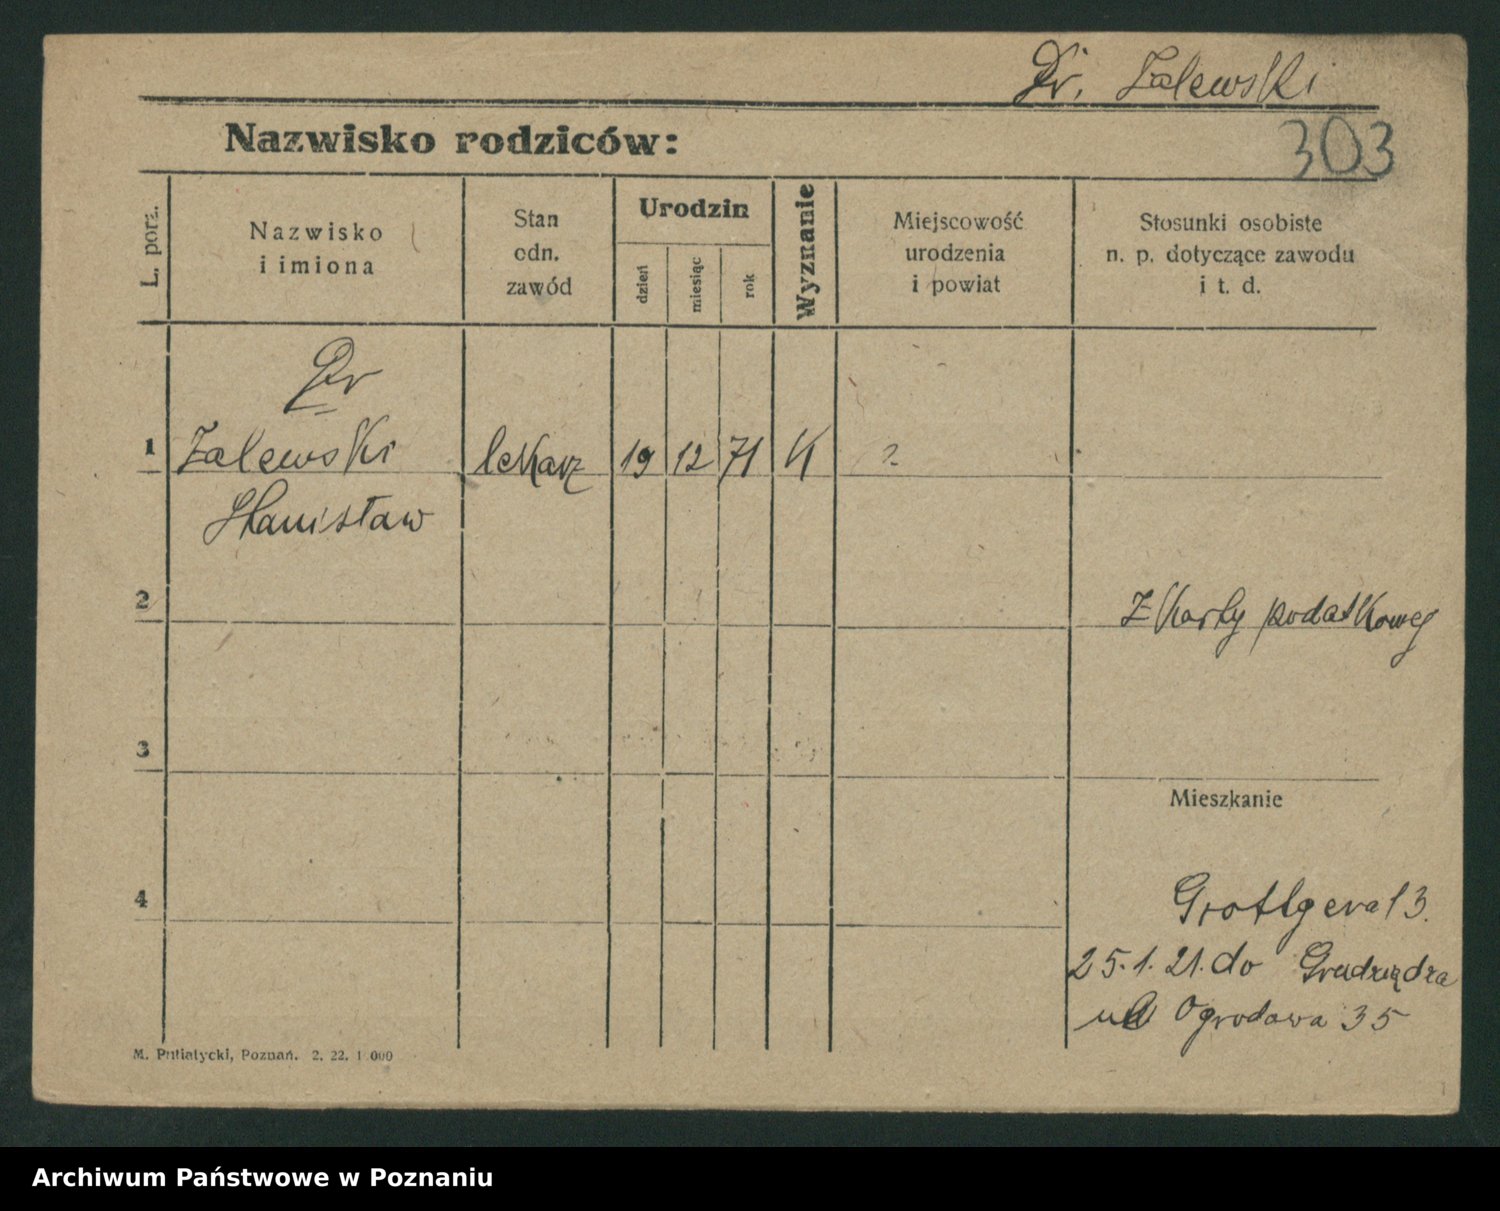 Dr. Zalewski
303
Nazwisko rodziców:
L. porz.
Nazwisko
i imiona
Stan
odn.
zawód
Urodzin
dzień
miesiąc
rok
Wyznanie
Miejscowość
urodzenia
i powiat
Stosunki osobiste
n. p. dotyczące zawodu
i t. d.
Dr
1 Zalewski lekarz 19 12 71 K ?
Stanisław
2
Z Karty podatkowej
3
Mieszkanie
4
Grottgera 13.
25.1.21. do Grudziądza
ul Ogrodowa 35
M. Putiatycki, Poznań. 2. 22. 1 000
Archiwum Państwowe w Poznaniu